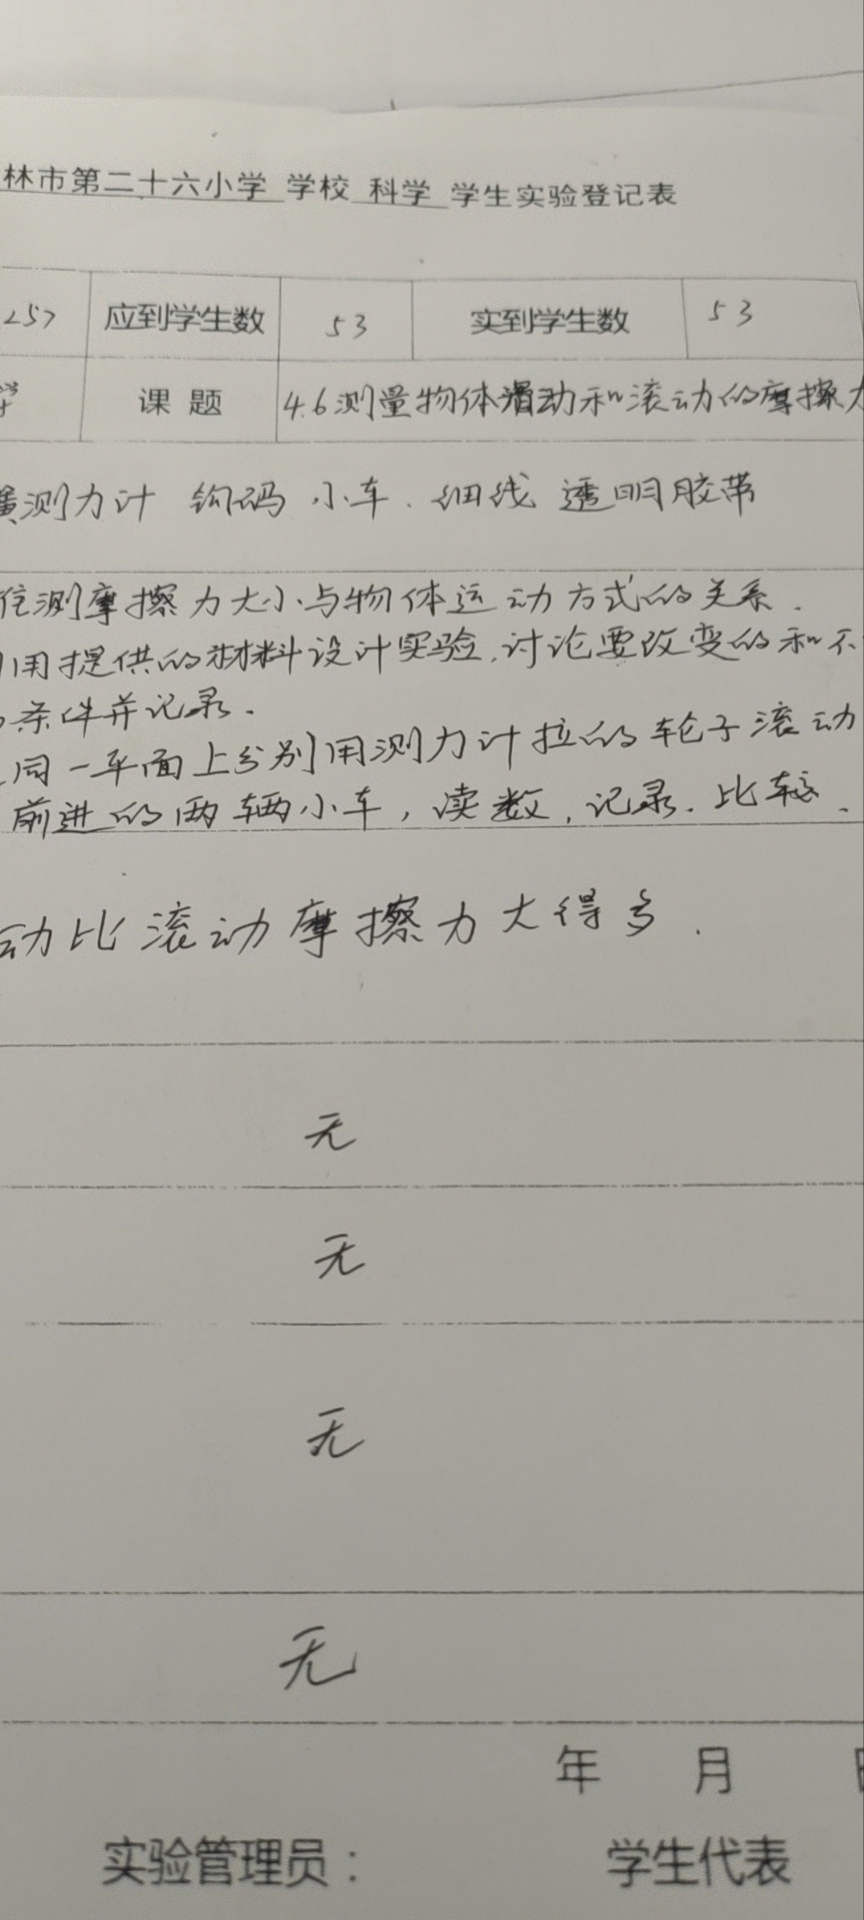 林市第二十六小学 学校 科学 学生实验登记表
257 应到学生数 53 实到学生数 53
学 课 题 4.6测量物体滑动和滚动的摩擦力
簧测力计 钩码 小车. 细线 透明胶带
测摩擦力大小与物体运动方式的关系.
用提供的材料设计实验,讨论要改变的和不
条件并记录.
同一平面上分别用测力计拉的轮子滚动
前进的两辆小车,读数,记录.比较.
动比滚动摩擦力大得多.
无
无
无
无
年 月 日
实验管理员: 学生代表